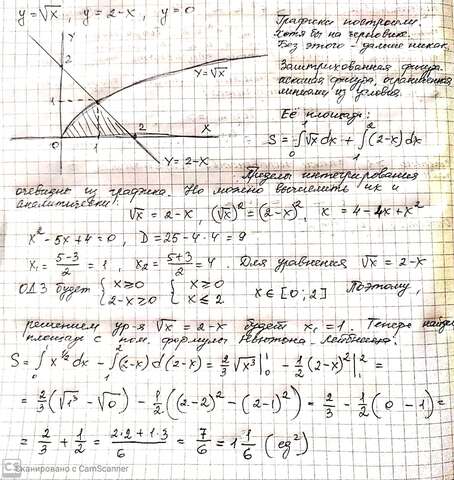 y=√x, y=2-x, y=0
Графики построили.
Хотя бы на черновике.
Без этого - дальше никак.
Заштрихованная фигура -
искомая фигура, ограниченная
линиями из условия.
Y
2
1
Y=√x
1
2
X
0
Y=2-X
Её площадь:
S=∫₀¹√x dx + ∫₁²(2-x)dx
Пределы интегрирования
очевидны из графика. Но можно вычислить их и
аналитически:
√x = 2-x, (√x)² = (2-x)², x = 4-4x+x²
x²-5x+4=0, D=25-4·4=9
x₁=(5-3)/2=1, x₂=(5+3)/2=4. Для уравнения √x = 2-x
ОДЗ будет {x≥0 2-x≥0 {x≥0 x≤2 x∈[0;2] Поэтому,
решением ур-я √x=2-x будет x₁=1. Теперь найдём
площадь с пом. формулы Ньютона-Лейбница:
S=∫₀¹x^(1/2)dx - ∫₁²(2-x)d(2-x) = 2/3 √x³|₀¹ - 1/2(2-x)²|₁² =
= 2/3(√1³-√0) - 1/2((2-2)²-(2-1)²) = 2/3 - 1/2(0-1) =
= 2/3 + 1/2 = (2·2+1·3)/6 = 7/6 = 1 1/6 (ед²)
CS Сканировано с CamScanner